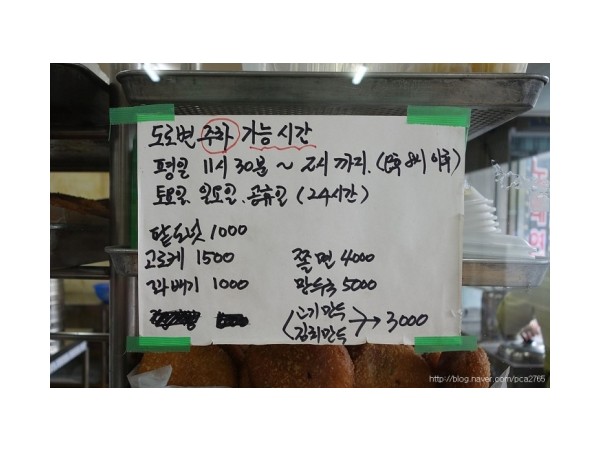 도로변 주차 가능시간
평일 11시 30분 ~ 2시까지. (밤 8시 이후)
토요일. 일요일. 공휴일 (24시간)
팥도넛 1000
고로케 1500
꽈배기 1000
쫄면 4000
만두국 5000
고기만두
김치만두 → 3000
http://blog.naver.com/pca2765